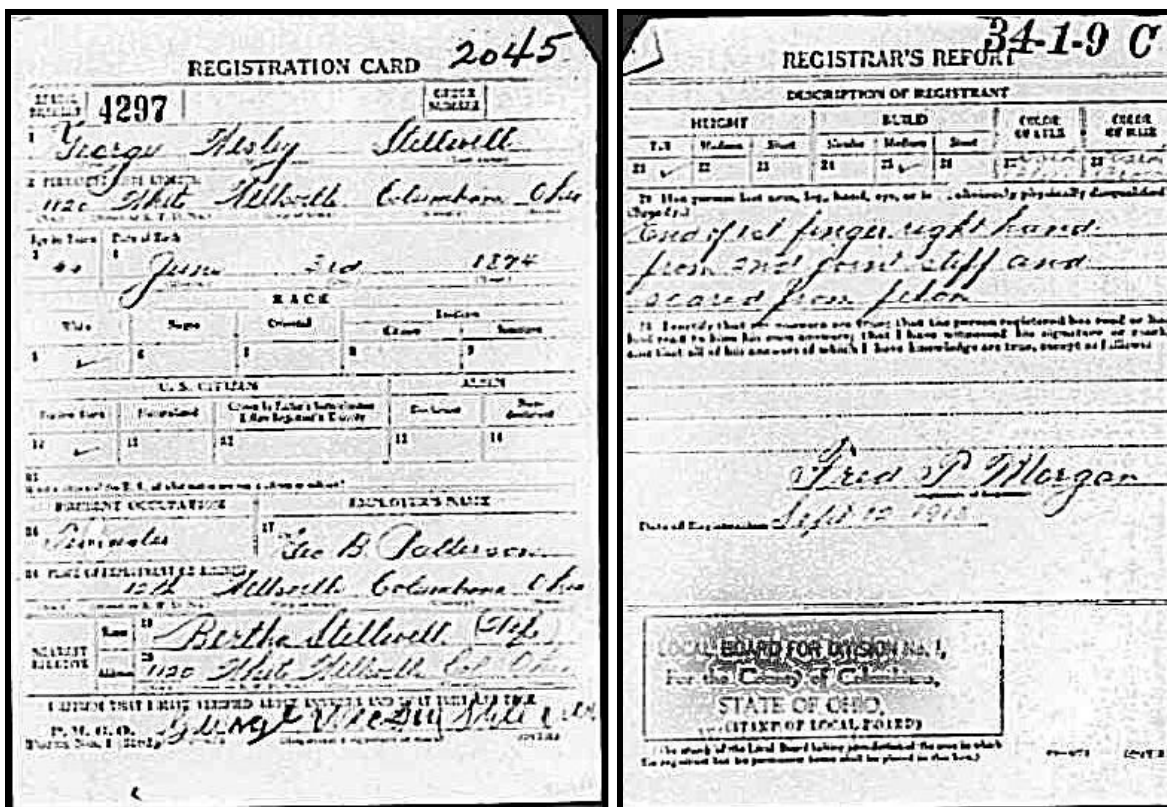 2045
REGISTRATION CARD
SERIAL NUMBER 4297 ORDER NUMBER
1 George Wesley Stillwell
2 PERMANENT HOME ADDRESS
1120 White Wellsville Columbiana Ohio
Age in Years Date of Birth
3 44 4 June 3rd 1874
RACE
White Negro Oriental Indian
Citizen
5 ✓ 6 7 8 9
U. S. CITIZEN ALIEN
Native Born Naturalized Citizen by Father's Naturalization Declarant Non-declarant
10 ✓ 11 12 13 14
15
PRESENT OCCUPATION EMPLOYER'S NAME
16 17 Geo B. Patterson
18 PLACE OF EMPLOYMENT OR BUSINESS
12th Wellsville Columbiana Ohio
NEAREST RELATIVE Name 19 Bertha Stillwell
Address 20 1120 White Wellsville Col. Ohio
I AFFIRM THAT I HAVE VERIFIED ABOVE ANSWERS AND THAT THEY ARE TRUE
P. M. G. O.
Form No. 1 (Red) George
34-1-9 C
REGISTRAR'S REPORT
DESCRIPTION OF REGISTRANT
HEIGHT BUILD COLOR OF EYES COLOR OF HAIR
Tall Medium Short Slender Medium Stout
21 ✓ 22 23 24 25 ✓ 26 27 28
29 Has person lost arm, leg, hand, eye, or is obviously physically disqualified?
(Specify.)
End of 1st finger right hand
from 2nd joint stiff and
scared from felon
30 I certify that my answers are true; that the person registered has read or has
had read to him his own answers; that I have witnessed his signature or mark,
and that all of his answers of which I have knowledge are true, except as follows:
Fred P Morgan
Date of Registration Sept 12 1918
LOCAL BOARD FOR DIVISION No. 1,
For the County of Columbiana,
STATE OF OHIO.
(STAMP OF LOCAL BOARD)
(The stamp of the Local Board having jurisdiction of the area in which
the registrant has his permanent home shall be placed in this box.)